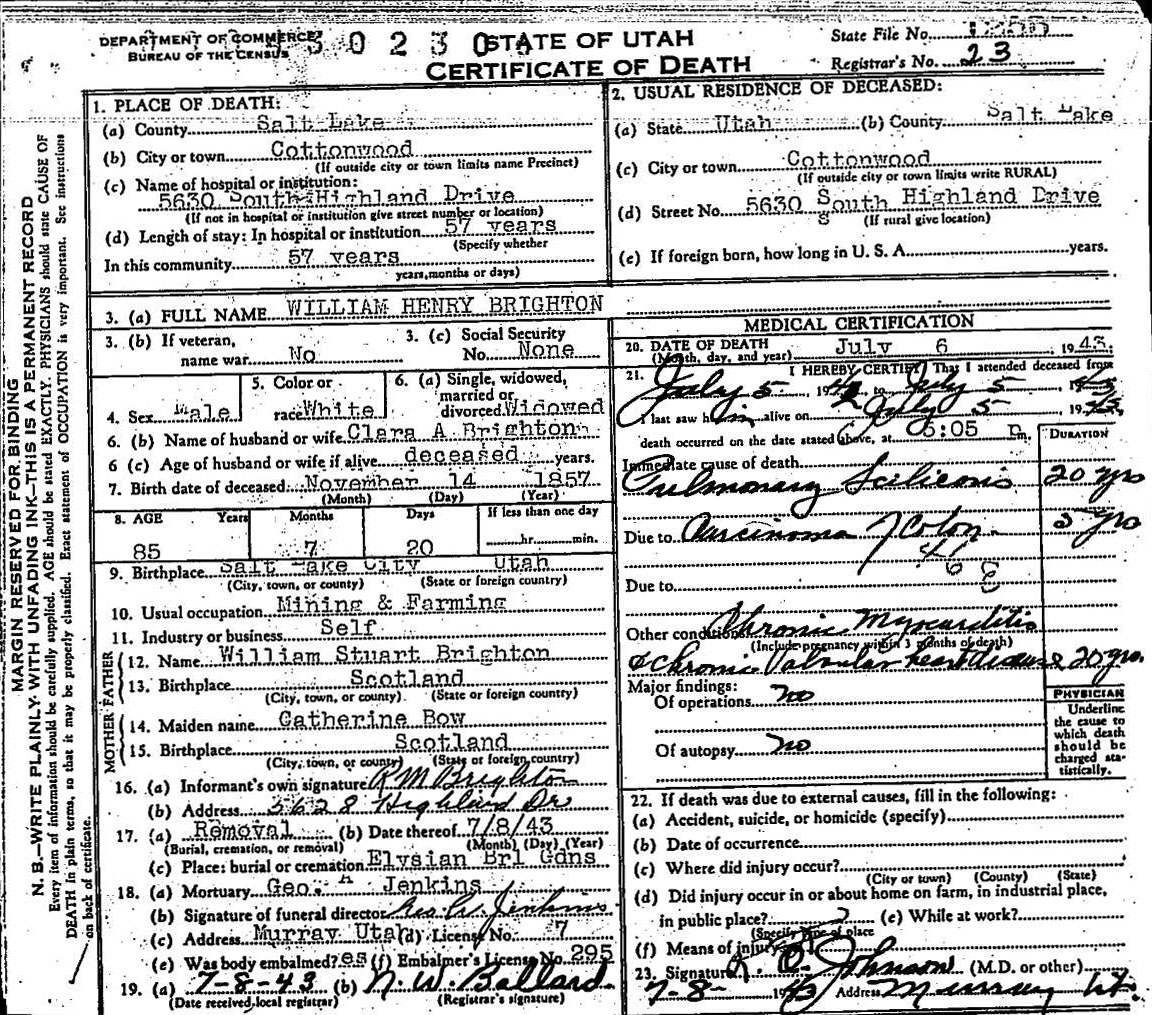 DEPARTMENT OF COMMERCE
BUREAU OF THE CENSUS
3 0 2 3 0
STATE OF UTAH
CERTIFICATE OF DEATH
State File No.
Registrar's No. 23
MARGIN RESERVED FOR BINDING
N. B.—WRITE PLAINLY WITH UNFADING INK—THIS IS A PERMANENT RECORD
Every item of information should be carefully supplied. AGE should be stated EXACTLY. PHYSICIANS should state CAUSE OF
DEATH in plain terms, so that it may be properly classified. Exact statement of OCCUPATION is very important. See instructions
on back of certificate.
1. PLACE OF DEATH:
(a) County Salt Lake
(b) City or town Cottonwood
(If outside city or town limits name Precinct)
(c) Name of hospital or institution:
5630 South Highland Drive
(If not in hospital or institution give street number or location)
(d) Length of stay: In hospital or institution 57 years
(Specify whether
In this community 57 years
years, months or days)
2. USUAL RESIDENCE OF DECEASED:
(a) State Utah (b) County Salt Lake
(c) City or town Cottonwood
(If outside city or town limits write RURAL)
(d) Street No. 5630 South Highland Drive
(If rural give location)
(e) If foreign born, how long in U. S. A. years.
3. (a) FULL NAME WILLIAM HENRY BRIGHTON
3. (b) If veteran, name war No
3. (c) Social Security No. None
4. Sex Male
5. Color or race White
6. (a) Single, widowed, married or divorced Widowed
6. (b) Name of husband or wife Clara A Brighton
6 (c) Age of husband or wife if alive deceased years.
7. Birth date of deceased November 14 1857
(Month) (Day) (Year)
8. AGE Years Months Days If less than one day
85 7 20 hr. min.
9. Birthplace Salt Lake City Utah
(City, town, or county) (State or foreign country)
10. Usual occupation Mining & Farming
11. Industry or business Self
FATHER
12. Name William Stuart Brighton
13. Birthplace Scotland
(City, town, or county) (State or foreign country)
MOTHER
14. Maiden name Catherine Bow
15. Birthplace Scotland
(City, town, or county) (State or foreign country)
16. (a) Informant's own signature R M Brighton
(b) Address 5628 Highland Dr
17. (a) Removal (b) Date thereof 7/8/43
(Burial, cremation, or removal) (Month) (Day) (Year)
(c) Place: burial or cremation Elysian Brl Gdns
18. (a) Mortuary Geo. A Jenkins
(b) Signature of funeral director Jenkins
(c) Address Murray Utah (d) License No. 7
(e) Was body embalmed? es (f) Embalmer's License No. 295
19. (a) 7-8-43 (b) N. W. Ballard
(Date received local registrar) (Registrar's signature)
MEDICAL CERTIFICATION
20. DATE OF DEATH July 6 1943.
(Month, day, and year)
21. I HEREBY CERTIFY That I attended deceased from
July 5, 1943 to July 5 1943
I last saw him alive on July 5 1943.
death occurred on the date stated above, at 6:05 P m.
DURATION
Immediate cause of death
Pulmonary Scilicosis 20 yrs
Due to Carcinoma of Colon 5 yrs
46
Due to
Other conditions Chronic Myocarditis
(Include pregnancy within 3 months of death)
& Chronic Valvular heart disease 20 yrs.
Major findings:
Of operations no
Of autopsy no
PHYSICIAN
Underline
the cause to
which death
should be
charged sta-
tistically.
22. If death was due to external causes, fill in the following:
(a) Accident, suicide, or homicide (specify)
(b) Date of occurrence
(c) Where did injury occur?
(City or town) (County) (State)
(d) Did injury occur in or about home on farm, in industrial place,
in public place? (e) While at work?
(Specify type of place
(f) Means of injury
23. Signature O. Johnson (M.D. or other)
7-8- 1943 Address Murray Ut.